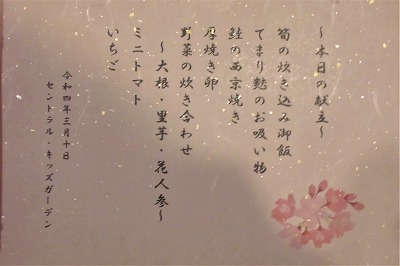 ～本日の献立～
筍の炊き込み御飯
てまり麩のお吸い物
鮭の西京焼き
厚焼き卵
野菜の炊き合わせ
～大根・里芋・花人参～
ミニトマト
いちご
令和四年三月十日
セントラル・キッズガーデン